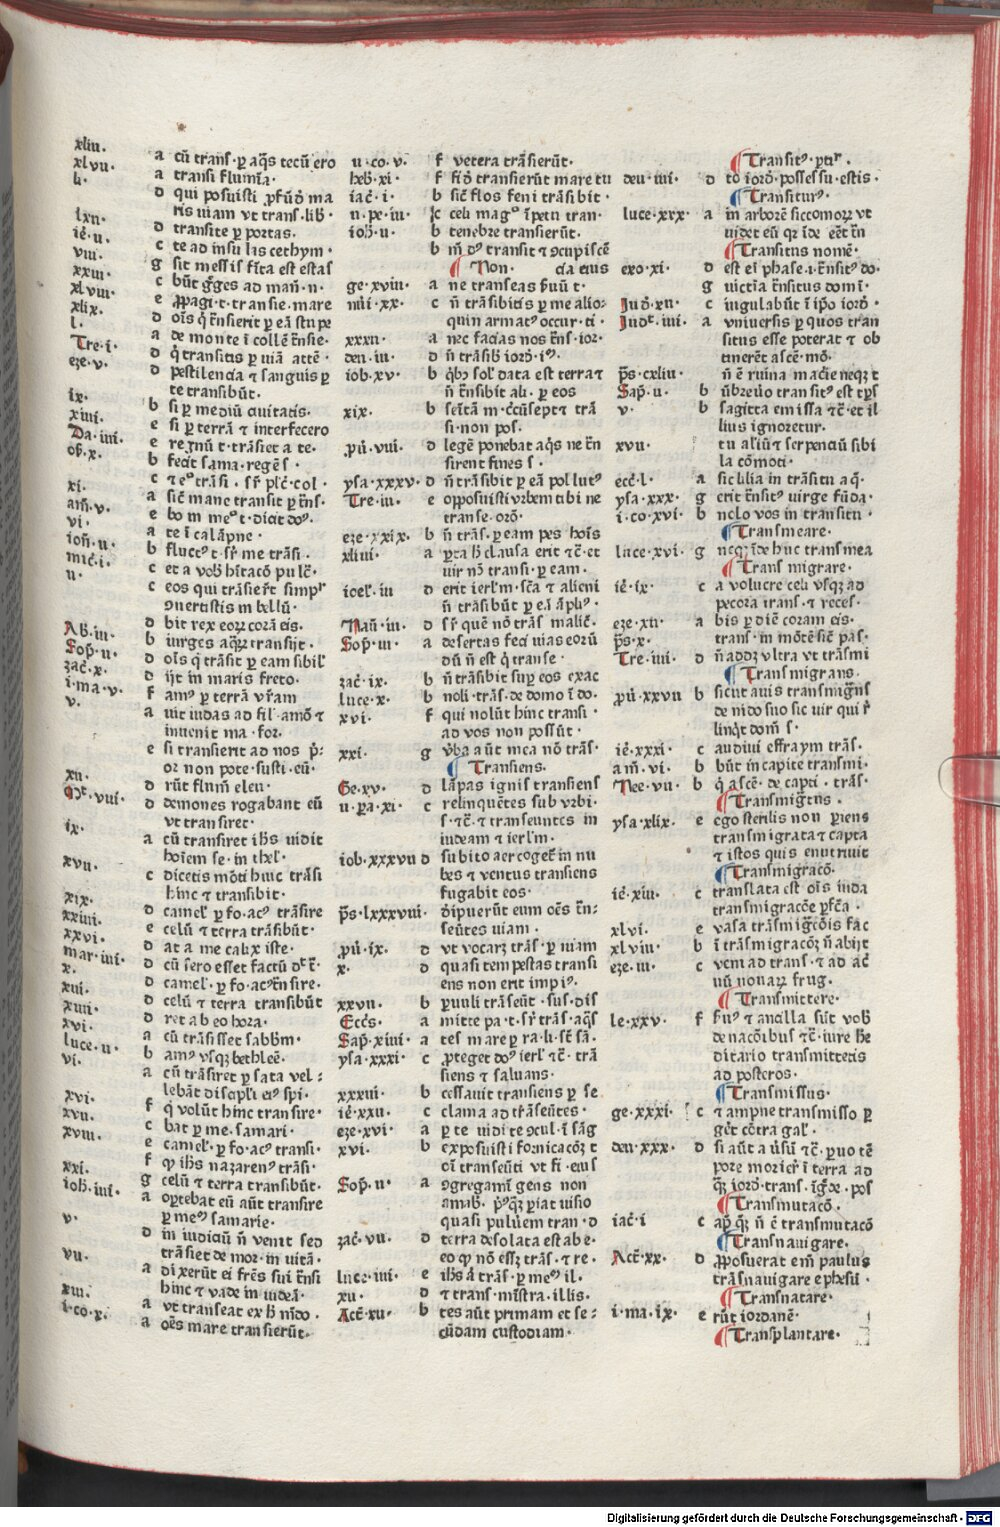 xliii. a cū transſ·ꝑ aq̄s tecū ero
xlvii. a transi flumīa·
li. d qui posuisti ꝓfūdū ma
ris uiam vt trans·lib̄·
lxii. d transite ꝑ portas·
iē·ii· c te ad insulas cethym·
viii. g sit messis fīta est estas
xxiii. c būt gͣges ad man̄·n·
xlviii. e ꝓpagi·t·transie·mare
xlix. d oīs q̇ tͣnsierit ꝑ eā stupe
l. a de monte ī collē tͣnsie·
Tre·i· d q̇ transitis ꝑ uiā attē·
eze·v· d pestilencia ⁊ sanguis ꝑ
te transibūt·
ix. b si ꝑ mediū ciuitatis·
xiiii. e si ꝑ terrā ⁊ interfecero
Da·iiii· e regnū t·trāsiet a te·
oẜ·x. b fecit sama·regē s·
xi. c ⁊ eᵒ trāsi·sꝛ̄ plc̄·col·
am̄·v. a sic̄ mane transit ꝑ tͣns·
vi· e bo in meᵒ t·dicit doꝰ·
ioħ·ii· a te ī calāpne·
mic̄·i. b fluctꝰ t·sꝛ̄ me trāsi·
ii· c et a vob̄ hītacō pulc̄·
c eos qui trāsier̄t simpl̄
ꝯuertistis in bellū·
Ab·iii· d bit rex eoꝝ corā eis·
Sop̄·ii· b iurges aq̄ꝝ transijt·
zac̄·x. d oīs q̇ trāsit ꝑ eam sibil̄
i·ma·v· d ijt in maris freto·
v. f amꝰ ꝑ terrā vr̄am
a uit iudas ad fil̄·amō ⁊
inuenit ma·for·
e si transierit ad nos p̄:
or non pote·susti·eū·
xii. d rūt flum̄ eleu·
Mͭ·viii· d demones rogabant eū
vt transiret·
ix· a cū transiret ihs̄ uidit
hoīem se·in thel̄·
xvii. c dicetis mōti huic trāsi
hinc ⁊ transibit·
xix. d camel̄ ꝑ fo·acꝰ trāsire
xxiiii. e celū ⁊ terra trāsibūt·
xxvi. d at a me calix iste·
mar·iiii· d cū sero esset factū dᵗ tͣ·
x. d camel̄·ꝑ fo·acꝰ tͣnsire·
xiii. d celū ⁊ terra transibūt
xiiii. d ret ab eo hora·
xvi. a cū trāsisset sabb̄m·
luce·ii· b amꝰ vsqꝫ bethleē·
vi. a cū trāsiret ꝑ sata vel:
lebāt discipl̄i eiꝰ spi·
xvi. f q̇ volūt hinc transire·
xvii. c bat ꝑ me·samari·
xviii. e camel̄·ꝑ fo·acꝰ transi·
f ꝙ ihs̄ nazarenꝰ trāsi·
xxi. g celū ⁊ terra transibūt·
ioħ·iiii· a oꝑtebat eū aūt transire
ꝑ meᵒ samarie·
v· d in iudiciū n̄ venit sed
trāsiet de mor·in uitā·
vii. a dixerūt ei fr̄es sui tͣnsi
hinc ⁊ vade in iudeā·
xiii. a vt transeat ex h̄ mūdo·
i·co·x· a oēs mare transierūt·
ii·co·v· f vetera trāsierūt·
heb̄·xi· f fid̄ transierūt mare ru
iac̄·i· b sic̄ flos feni trāsibit·
ii·pe·iii· c celi magᵒ īpetu tran·
ioh̄·ii· b tenebre transierūt·
b m̄ dꝰ transit ⁊ ꝯcupiscē
¶ Non· cia eius
ge·xviii· a ne transeas ẜuū t·
nūi·xx· c n̄ trāsibitis ꝑ me alio·
quin armatꝰ occur·ti·
xxxii· a nec facias nos tͣns·ior·
deu·iii· d n̄ trāsib̄ iord̄·iꝰ·
iob·xv· b q̇bꝰ sol̄ data est terra ⁊
n̄ tͣnsibit ali·ꝑ eos
xix· b seītā m·c̄cūsept ⁊ trā
si·non pos·
pū·viii· d legē ponebat aq̄s ne tͣn
sirent fines s·
ysa·xxxv· d n̄ trāsibit ꝑ eā pollutꝰ
Tre·iii· e opposuisti vrbem tibi ne
transe·orō·
eze·xxix· b n̄ trās·ꝑ eam pes hoīs
xliiii· a ꝑta h̄ clausa erit ⁊c̄·et
uir nō transi·ꝑ eam·
ioel̄·iii d erit ierl̄m·sc̄a ⁊ alieni
n̄ trāsibūt ꝑ eā āpliꝰ·
Naū·iii· d sꝛ̄ quē nō trās malic̄·
Sop̄·iii· a desertas feci uias eorū
dū n̄ est q̇ transe·
zac̄·ix· b n̄ trāsibit suꝑ eos exac
luce·x· b noli·trās·de domo ī do·
xvi· f qui nolūt hinc transi·
ad vos non possūt·
xxi. g v̄ba aūt mea nō trās·
¶ Transiens·
Ge·xv· d lāpas ignis transiens
ii·ꝑa·xi· c relinquētes suburbi·
s·⁊c̄·⁊ transeuntes in
iudeam ⁊ ierl̄m·
iob·xxxvii d subito aer coget̄ in nu
bes ⁊ ventus transiens
fugabit eos·
ps̄·lxxxviii· diripuerūt eum oēs tͣn:
seūtes uiam·
pū·ix· d vt vocarꝫ trās·ꝑ uiam
x· d quasi tempestas transi
ens non erit impiꝰ·
xxvii· b ꝑuuli trāseūt·sus·dis
Eccs̄· a mitte pa·t·sꝛ̄ trās·aq̄s
Sap̄·xiiii· a tes mare ꝑ ra·li·st̄ sā·
ysa·xxxi· c ꝓteget doꝰ ierl̄ ⁊c̄·trā
siens ⁊ saluans·
xxxiii· b cessauit transiens ꝑ se
iē·xxii· c clama ad trāseūtes·
eze·xvi· a ꝑ te uidi te ꝯcul·ī sāg
xvi· b exposuisti fornicacōꝫ t
oī transeūti vt fi·eius
Sop̄·ii· a ꝯgregamī gens non
amab̄·pͥꝰqꝫ ꝑiat iussio
quasi puluem tran·d
zac̄·vii· d terra desolata est ab e·
eo ꝙ nō essꝫ trās·⁊ re·
luce·iiii· e ihs̄ ā trās·ꝑ meᵒ il·
xii· d ⁊ trans·mīstra·illis·
Act̄·xii· b tes aūt primam et se:
cūdam custodiam·
¶ Transitꝰ·pti͛·
deu·iiii· d tō iord̄·possessu·estis·
¶ Transiturꝰ·
luce·xix· a in arborē siccomoꝝ vt
uidet eū qꝛ īde eēt tͣn
¶ Transitus nomē·
exo·xi· d est eī phase·i·tͣnsitꝰ do·
g uictīa tͣnsitus domī·
Jud̄·xii· c iugulabūt ī ip̄o iord̄·
Judͭ·iiii· a vniuersis ꝑ quos tran
situs esse poterat ⁊ ob
tinerēt ascē·mō·
ps̄·cxliii· n̄ ē ruina macie neqꝫ t
Sap̄·ii· b ūbre uio transitꝰ est tp̄s
v· b sagitta emissa ⁊c̄·et il
lius ignoretur·
xvii· tu aliū ⁊ serpenciū sibi
la cōmoti·
ecc̄·l· a sic lilia in trāsitu aq̄·
ysa·xxx· g erit tͣnsitꝰ uirge fūda·
i·co·xvi· b nolo vos in transitu·
¶ Transmeare·
luce·xvi· g neqꝫ īde huc transmea
¶ Transmigrare·
iē·ix· c a volucre celi vsqꝫ ad
pecora trans·⁊ reces·
eze·xii· a bis ꝑ diē coram eis·
ps̄·x· trans·in mōtē sic̄ pas·
Tre·iiii· d n̄ addꝫ vltra vt trāsmi
¶ Transmigrans·
pū·xxvii b sicut auis transmigͣns
de nido suo sic uir qui r̄
linq̇t domū s·
iē·xxxi· c audiui effraym trās·
am̄·vi· b būt in capite transmi·
Nee·vii· b q̇ ascē·de capti·trās·
¶ Transmigͣtus·
ysa·xlix· e ego sterilis non ꝑiens
transmigrata ⁊ capta
⁊ istos quis enutriuit
¶ Transmigracō·
iē·xiii· c translata est oīs iuda
transmigracōe ꝑfc̄a·
xlvi· e vasa trāsmigͣcōis fac
xlviii· b ī trāsmigracōꝫ n̄ abijt
eze·iii· c veni ad trans·⁊ ad ac̄
uū nouaꝝ frug·
¶ Transmittere·
le·xxv· f ẜuꝰ ⁊ ancilla sūt vob̄
de nacōibus ⁊c̄·iure he
ditario transmittetis
ad posteros·
¶ Transmissus·
ge·xxxi· c ⁊ ampne transmisso ꝑ
get̄ cōtra gal̄·
deu·xxx· d si aūt auͣsū ⁊c̄·ꝑuo tē
pore morier̄ ī terra ad
qͣꝫ iord̄·trans·īgͣde·pos
¶ Transmutacō·
iac̄·i c ap̄ q̄ꝫ n̄ ē transmutacō
¶ Transnauigare·
Act̄·xx· d ꝓposuerat em̄ paulus
trāsnauigare ephesū·
¶ Transnatare·
i·ma·ix· e rūt iordanē·
¶ Transplantare·
Digitalisierung gefördert durch die Deutsche Forschungsgemeinschaft - DFG